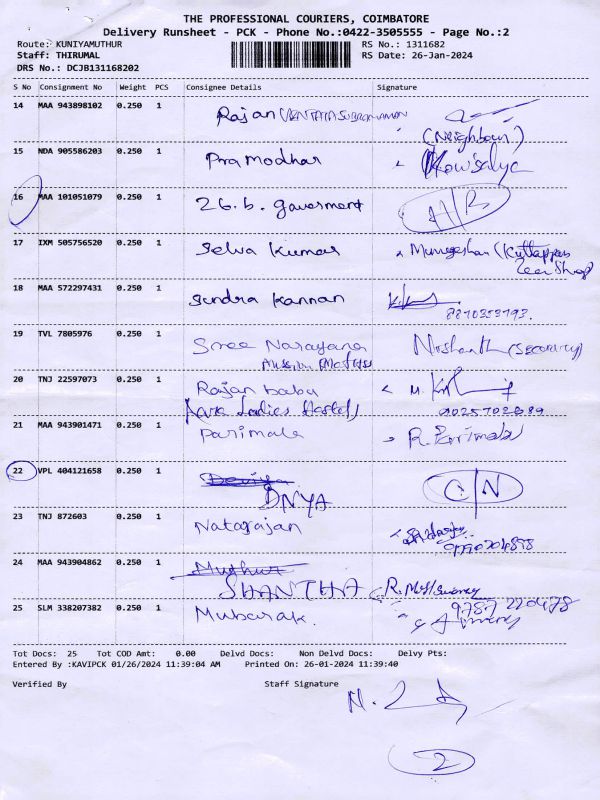 THE PROFESSIONAL COURIERS, COIMBATORE
Delivery Runsheet - PCK - Phone No.:0422-3505555 - Page No.:2
Route: KUNIYAMUTHUR RS No.: 1311682
Staff: THIRUMAL RS Date: 26-Jan-2024
DRS No.: DCJB131168202
S No Consignment No Weight PCS Consignee Details Signature
14 MAA 943898102 0.250 1 Rajan
(Neighbour)
15 NDA 905586203 0.250 1 Pramodhar Kowsalya
16 MAA 101051079 0.250 1 26.b. gaverment H/B
17 IXM 505756520 0.250 1 Selva Kumar Murugeshan (Kuttappas
Shop)
18 MAA 572297431 0.250 1 Sundra Kannan
19 TVL 7805976 0.250 1 Sree Narayana Nishanth (Secorary)
20 TNJ 22597073 0.250 1 Rajan babu
Ladies Hostel)
21 MAA 943901471 0.250 1 Parimala R. Parimala
22 VPL 404121658 0.250 1 C/N
DNYA
23 TNJ 872603 0.250 1 Natarajan
24 MAA 943904862 0.250 1
SHANTHA
9787 220478
25 SLM 338207382 0.250 1 Mubarak.
Tot Docs: 25 Tot COD Amt: 0.00 Delvd Docs: Non Delvd Docs: Delvy Pts:
Entered By :KAVIPCK 01/26/2024 11:39:04 AM Printed On: 26-01-2024 11:39:40
Verified By Staff Signature
2